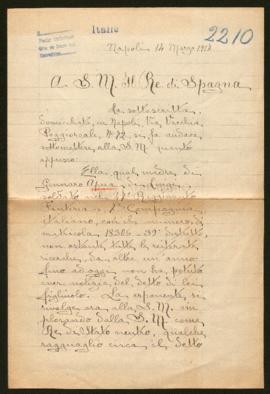 Italie
2210
Napoli 14 Marzo 1918
A S. M. Il Re di Spagna
La sottoscritta
domiciliata in Napoli Via Vecchia
Poggioreale N. 22, si fa ardire
sottomettere alla S. M. quanto
appresso:
Ella, qual madre di
Gennaro Apua di Luigi
soldato nel Reggimento
Fanteria Compagnia
italiano, con il numero di
matricola 18306
non ostante tutte le reiterate
ricerche, da oltre un anno
fino ad oggi non ha potuto
aver notizie del detto di lei
figliuolo. La esponente, si
rivolge ora alla S. M. im
plorando dalla S. M. come
Re di Stato neutro, qualche
ragguaglio circa il detto